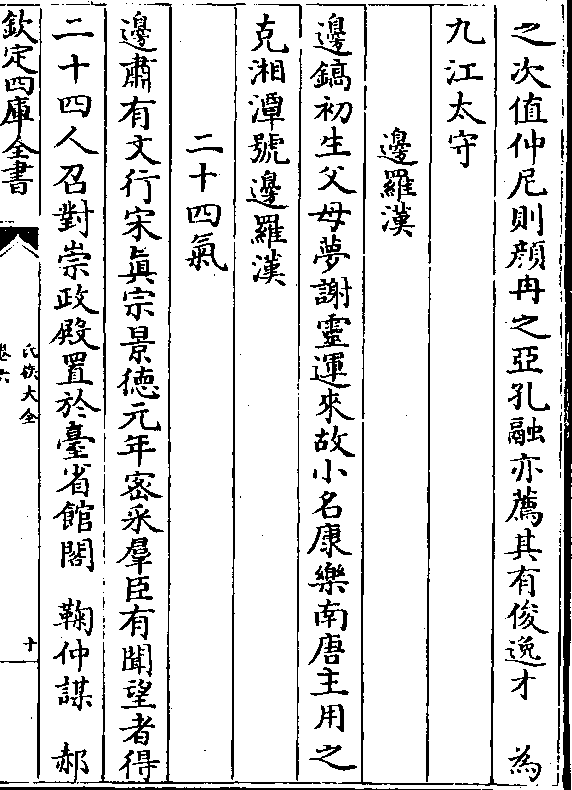 之次值仲尼則顔冉之亞孔融亦薦其有俊逸才　為
九江太守
邊羅漢
邊鎬初生父母夢謝靈運來故小名康樂南唐主用之
克湘潭號邊羅漢
二十四氣
邊肅有文行宋眞宗景徳元年宻采羣臣有聞望者得
二十四人召對崇政殿置於臺省館閣　鞠仲謀　郝
欽定四庫全書
氏族大全
卷六
十